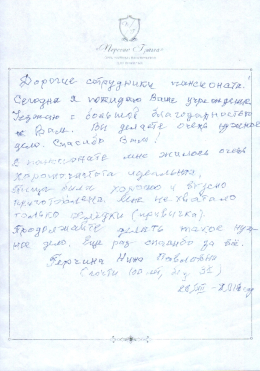 Дорогие сотрудники пансионата!
Сегодня я покидаю Ваше учреждение
Уезжаю с большой благодарностью
к Вам. Вы делаете очень нужное
дело. Спасибо Вам!
В пансионате мне жилось очень
хорошо, чистота идеальная,
пища была хорошо и вкусно
приготовлена. Мне не хватало
только
Продолжайте делать такое нуж-
ное дело. Еще раз спасибо за всё.
Нина Павловна